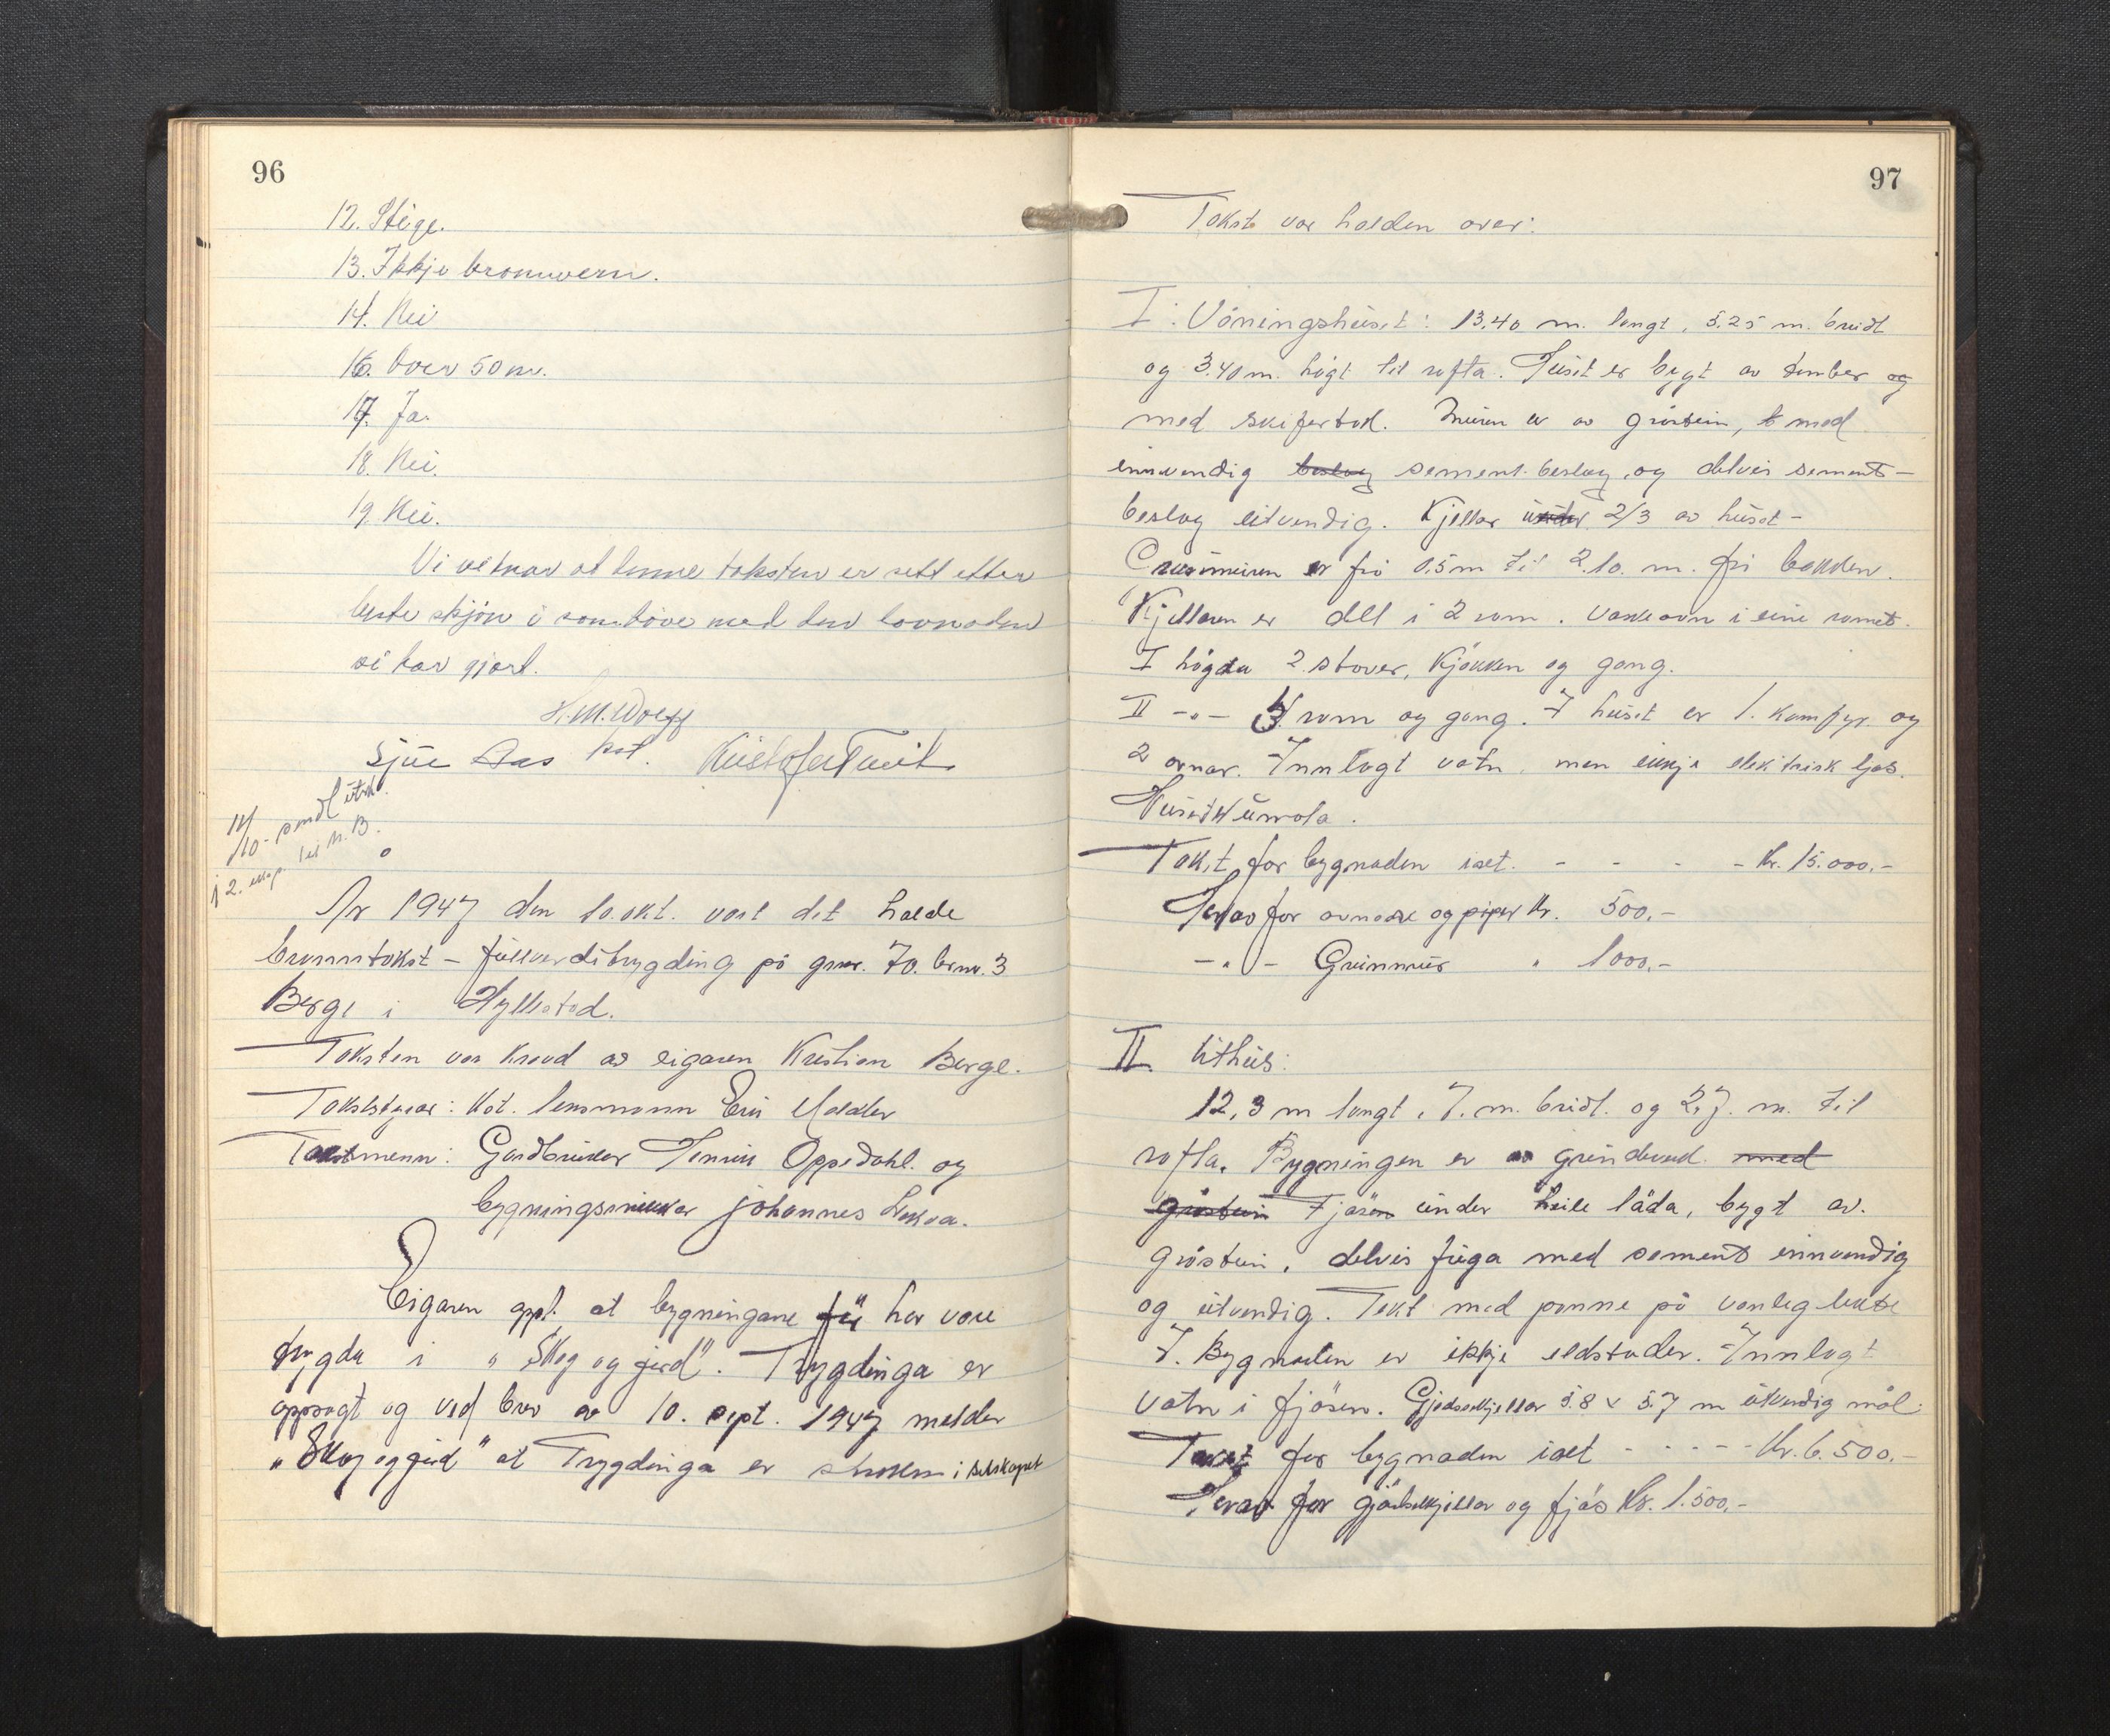 96
12. Stige.
13. Ikkje brannvern.
14. Nei
16. Over 50 m.
17. Ja.
18. Nei.
19. Nei.
Vi vetnar at denne taksten er sett etter
beste skjön i samhöve med den lovnaden
vi har gjort.
H.M. Wolff
Sjur Aas kst. Kristofer Tveit
14/10 - sendt utskr.
i 2. eksp. til N.B.
År 1947 den 10. okt. vart det halde
branntakst - fullverditrygding på gnr. 70. brnr. 3
Berge i Hyllestad.
Taksten var kravd av eigaren Kristian Berge.
Takststyrar: Kst. lensmann
Takstmenn: Gardbruker Oppedahl. og
bygningssnikkar Johannes
Eigaren oppl. at bygningane få har vore
trygda i "Skog og jord". Trygdinga er
oppsagt og ved brev av 10. sept. 1947 melder
"Skog og jord" at Trygdinga er stroken i selskapet
97
Takst var halden over:
I: Våningshuset: 13.40 m. langt, 5.25 m. breidt
og 3.40 m. högt til rofta. Huset er bygt av tømber og
med skifertak. Muren er av gråstein, t med
innvendig beslag sement-beslag, og delvis sement-
beslag utvendig. Kjellar under 2/3 av huset -
Grunnmuren er frå 0.5 m til 2.10. m. frå bakken.
Kjellaren er delt i 2 rom. Vaskeovn i eine romet.
I högda 2 stover, Kjøkken og gang.
II -"- 3 rom og gang. I huset er 1. komfyr. og
2 ovnar. Innlagt vatn, men ikkje elektrisk ljos.
Huset er åmåla.
Takst for bygnaden ialt. - - - - Kr. 15.000,-
Herav for ovnane og piper Kr. 500,-
-"- Grunnmur " 1000,-
II. Uthus:
12,3 m langt, 7. m. breidt. og 2,7. m. til
rofta. Bygningen er av grindverk. med
gråstein Fjøsen under heile låda, bygt av.
gråstein, delvis fuga med sement innvendig
og utvendig. Tekt med panne på vanleg lekte
I. Bygnaden er ikkje eldstader. Innlagt
vatn i fjøsen. Gjødselkjellar 5.8 x 5.7 m utvendig mål.
Takst for bygnaden ialt - - - - - Kr. 6.500.-
Herav for gjødselkjellar og fjøs Kr. 1.500,-